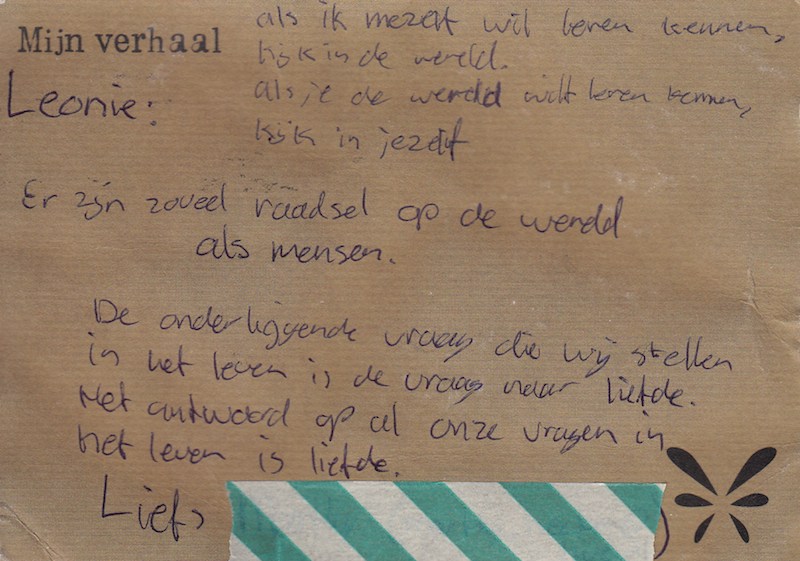 Mijn verhaal
als ik mezelf wil leren kennen,
kijk in de wereld.
Leonie:
als je de wereld wilt leren kennen,
kijk in jezelf
Er zijn zoveel raadsel op de wereld
als mensen.
De onderliggende vraag die wij stellen
in het leven is de vraag naar liefde.
Het antwoord op al onze vragen in
het leven is liefde.
Liefs